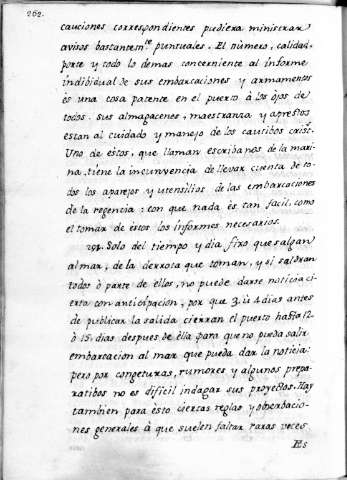 262.
cauciones correspondientes pudiera ministrar
avisos bastantem.te puntuales. El número, calidad,
porte y todo lo demas concerniente al informe
indibidual de sus embarcaciones y armamentos
es una cosa patente en el puerto à los ojos de
todos. sus almagacenes, maestranza y aprestos
estan al cuidado y manejo de los cautibos crist.
Uno de èstos, que llaman escribanos de la mari-
na, tiene la incunvencia de llevar cuenta de to-
dos los aparejos y utensilios de las embarcaciones
de la regencia: con que nada ès tan facil, como
el tomar de èstos los informes necesarios.
Solo del tiempo y dia fixo que salgan
al mar, de la derrota que toman, y si saldran
todos ò parte de ellos, no puede darse noticia ci-
erta con anticipacion, por que 3. ù 4 dias antes
de publicar la salida cierran el puerto hasta 12
ò 15. dias despues de èlla para que no pueda salir
embarcacion al mar que pueda dar la noticia:
pero por congeturas, rumores y algunos prepa-
ratibos no es dificil indagar sus proyectos. Hay
tambien para èsto ciertas reglas y observacio-
nes generales à que suelen faltar raras veces.
Es